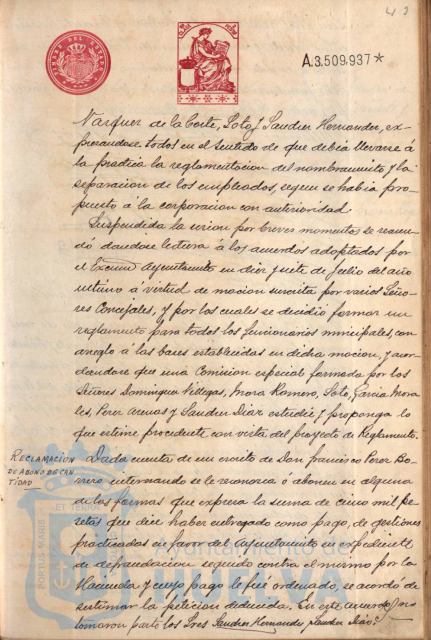 43
TIMBRE DEL ESTADO
A.3.509.937*
Vazquez de la Corte, Soto y Saudier Hernandez, ex-
presandose todos en el sentido de que debia llevarse á
la practica la reglamentacion del nombramiento y la
separacion de los empleados, segun se habia pro-
puesto á la corporacion con anterioridad
Suspendida la sesion por breves momentos se reanu-
dó dandose lectura á los acuerdos adoptados por
el Excmo Ayuntamiento en diez y siete de Julio del año
ultimo á virtud de mocion suscrita por varios Seño-
res Concejales, y por los cuales se decidió formar un
reglamento para todos los funcionarios municipales, con
arreglo á las bases establecidas en dicha mocion, y acor-
dandose que una Comision especial formada por los
Señores Dominguez Villegas, Mora Romero, Soto, Garcia Mora-
les, Perez Arenas y Saudier Diaz estudie y proponga lo
que estime procedente con vista del proyecto de Reglamento.
RECLAMACION
DE ABONO DE CAN
TIDAD
Dada cuenta de un escrito de Don Francisco Perez Bo-
rrero interesando se le reconozca ó abone en alguna
de las formas que expresa la suma de cinco mil pe-
setas que dice haber entregado como pago, de gestiones
practicadas en favor del Ayuntamiento en expediente
de defraudacion seguido contra el mismo por la
Hacienda y cuyo pago le fué ordenado, se acordó de-
sestimar la peticion deducida. En este acuerdo no
tomaron parte los Sres Saudier Hernandez Saudier Diaz.
PORTUS MARIS ET TERRAE
Ayuntamiento de